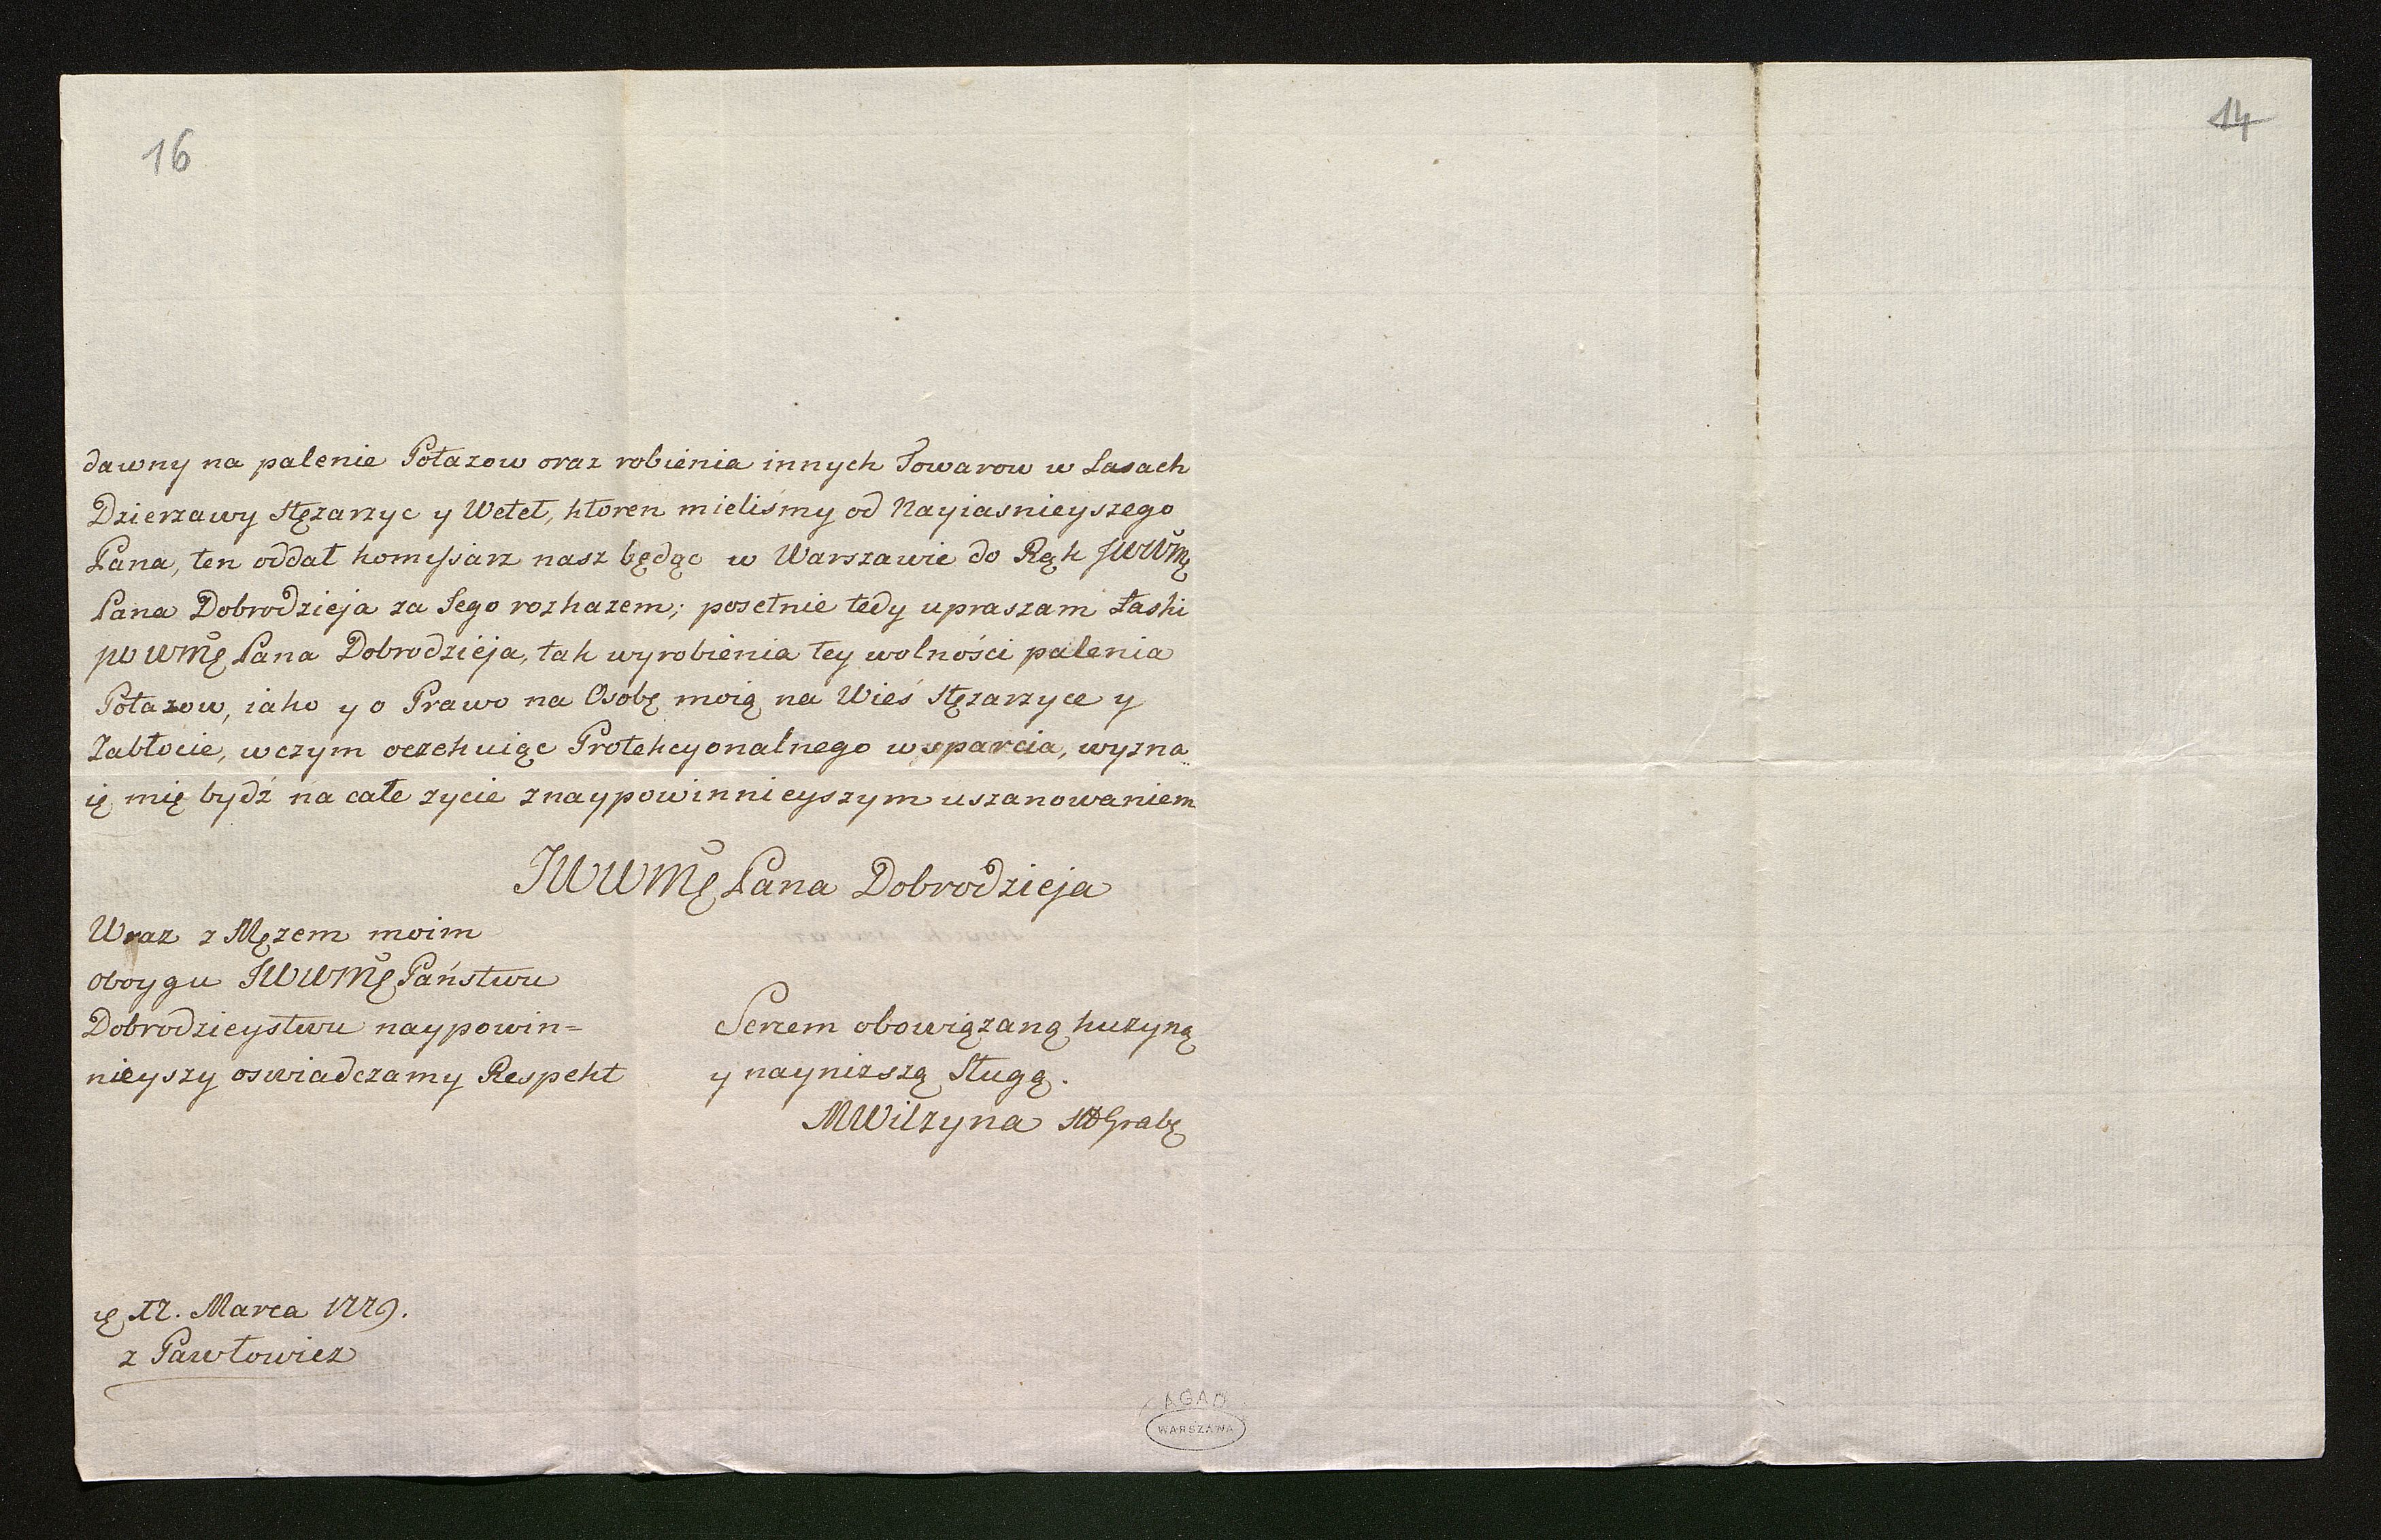 16
14
dawny na palenie Potazow oraz robienia innych Towarow w Lasach
Dzierzawy Stęzarzyc y Wetet, ktoren mieliśmy od Nayiasnieyszego
Pana, ten oddał komissarz nasz będąc w Warszawie do Rąk JWWMę
Pana Dobrodzieja za Jego rozkazem; posetnie tedy upraszam Łaski
JWWMę Pana Dobrodzieja, tak wyrobienia tey wolności palenia
Potazow, iako y o Prawo na Osobę moią na Wieś Stęzarzyce y
Zabłocie, wczym oczekuiąc Protekcyonalnego wsparcia, wyzna
ię mię bydź na całe zycie z naypowinnieyszym uszanowaniem
JWWMę Pana Dobrodzieja
Wraz z Męzem moim
oboygu JWWMę Państwu
Dobrodzieystwu naypowin=
nieyszy oswiadczamy Respekt
Sercem obowiązaną kuzyną
y nayniższą Sługą.
MWilzyna
17. Marca 1779.
z Pawłowicz
AGAD
WARSZAWA